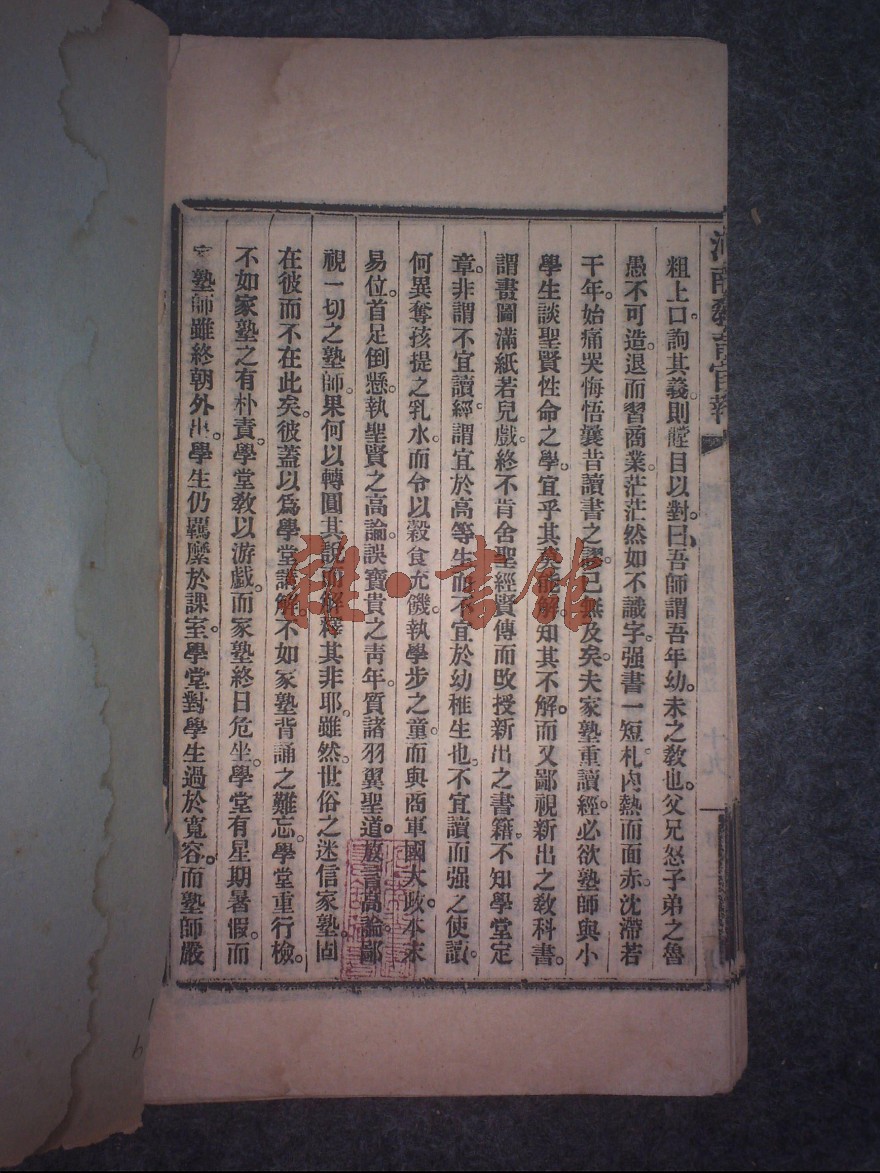 河南教育官報
粗上口。詢其義。則瞠目以對曰。吾師謂吾年幼。未之教也。父兄怒子弟之魯
愚不可造。退而習商業。茫茫然如不識字。强書一短札。內熱而面赤。沈滯若
干年。始痛哭悔悟曩昔讀書之謬。已無及矣。夫家塾重讀經。必欲塾師與小
學生談聖賢性命之學。宜乎其莫能解。知其不解。而又鄙視新出之教科書。
謂畫圖滿紙若兒戲。終不肯舍聖經賢傳而改授新出之書籍。不知學堂定
章。非謂不宜讀經。謂宜於高等生而不宜於幼稚生也。不宜讀而强之使讀。
何異奪孩提之乳水。而令以穀食充饑。執學步之童。而與商軍國大政。本末
易位。首足倒懸。執聖賢之高論。誤寶貴之靑年。質諸羽翼聖道。放言高論。鄙
視一切之塾師。果何以轉圓其說而解釋其非耶。雖然。世俗之迷信家塾。固
在彼而不在此矣。彼蓋以爲學堂講解。不如家塾背誦之難忘。學堂重行檢。
不如家塾之有朴責。學堂敎以游戲。而家塾終日危坐。學堂有星期暑假。而
塾師雖終朝外出。學生仍羈縻於課室。學堂對學生過於寬容。而塾師嚴
十九
雜·書館